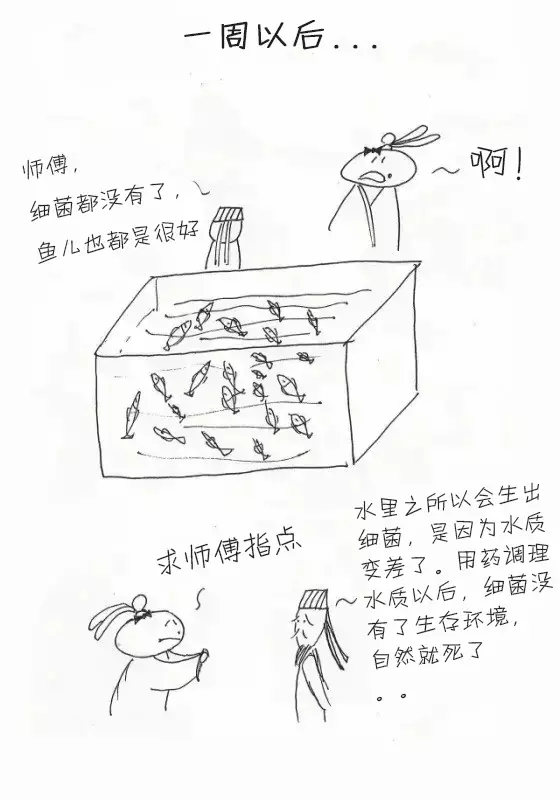 一周以后...
啊！
师傅，
细菌都没有了，
鱼儿也都是很好
求师傅指点
水里之所以会生出
细菌，是因为水质
变差了。用药调理
水质以后，细菌没
有了生存环境，
自然就死了
。。